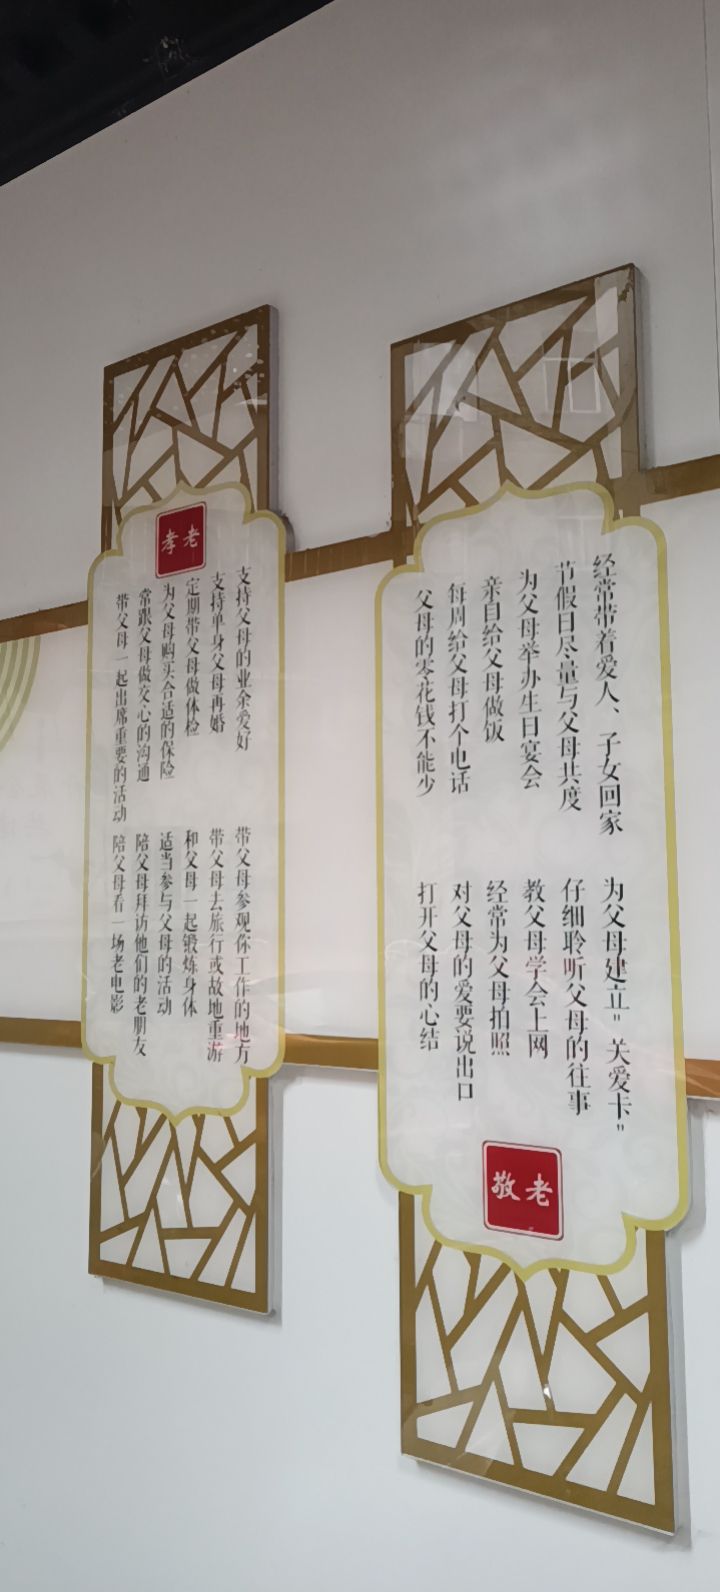 经常带着爱人、子女回家
节假日尽量与父母共度
为父母举办生日宴会
亲自给父母做饭
每周给父母打个电话
父母的零花钱不能少
为父母建立"关爱卡"
仔细聆听父母的往事
教父母学会上网
经常为父母拍照
对父母的爱要说出口
打开父母的心结
敬老
孝老
支持父母的业余爱好
支持单身父母再婚
定期带父母做体检
为父母购买合适的保险
常跟父母做交心的沟通
带父母一起出席重要的活动
带父母参观你工作的地方
带父母去旅行或故地重游
和父母一起锻炼身体
适当参与父母的活动
陪父母拜访他们的老朋友
陪父母看一场老电影